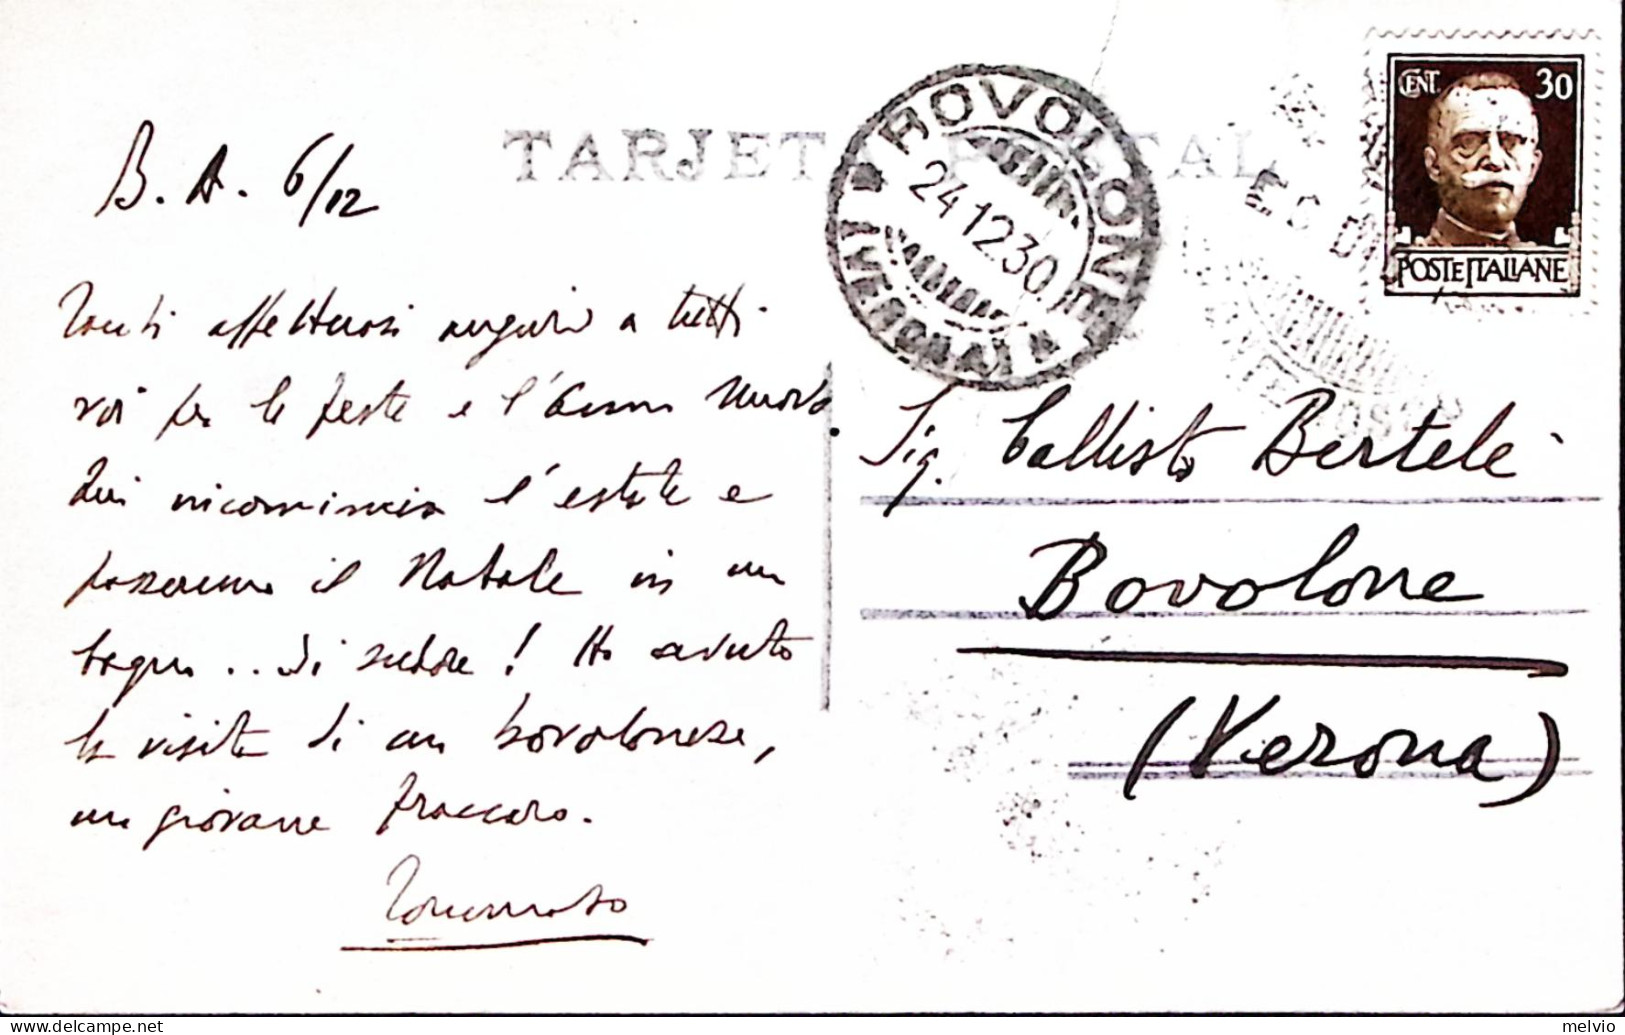 TARJETA POSTAL
B. A. 6/12
Tanti affettuosi auguri a tutti
voi per le feste e l'Anno Nuovo.
Qui ricomincia l'estate e
passeremo il Natale in un
bagno .. di sudore! Ho avuto
la visita di un bovolonese,
un giovane Fraccaro.
Tommaso
BOVOLONE
24.12.30
(VERONA)
CENT. 30
POSTE ITALIANE
Sig. Callisto Bertelè
Bovolone
(Verona)
delcampe.net
melvio